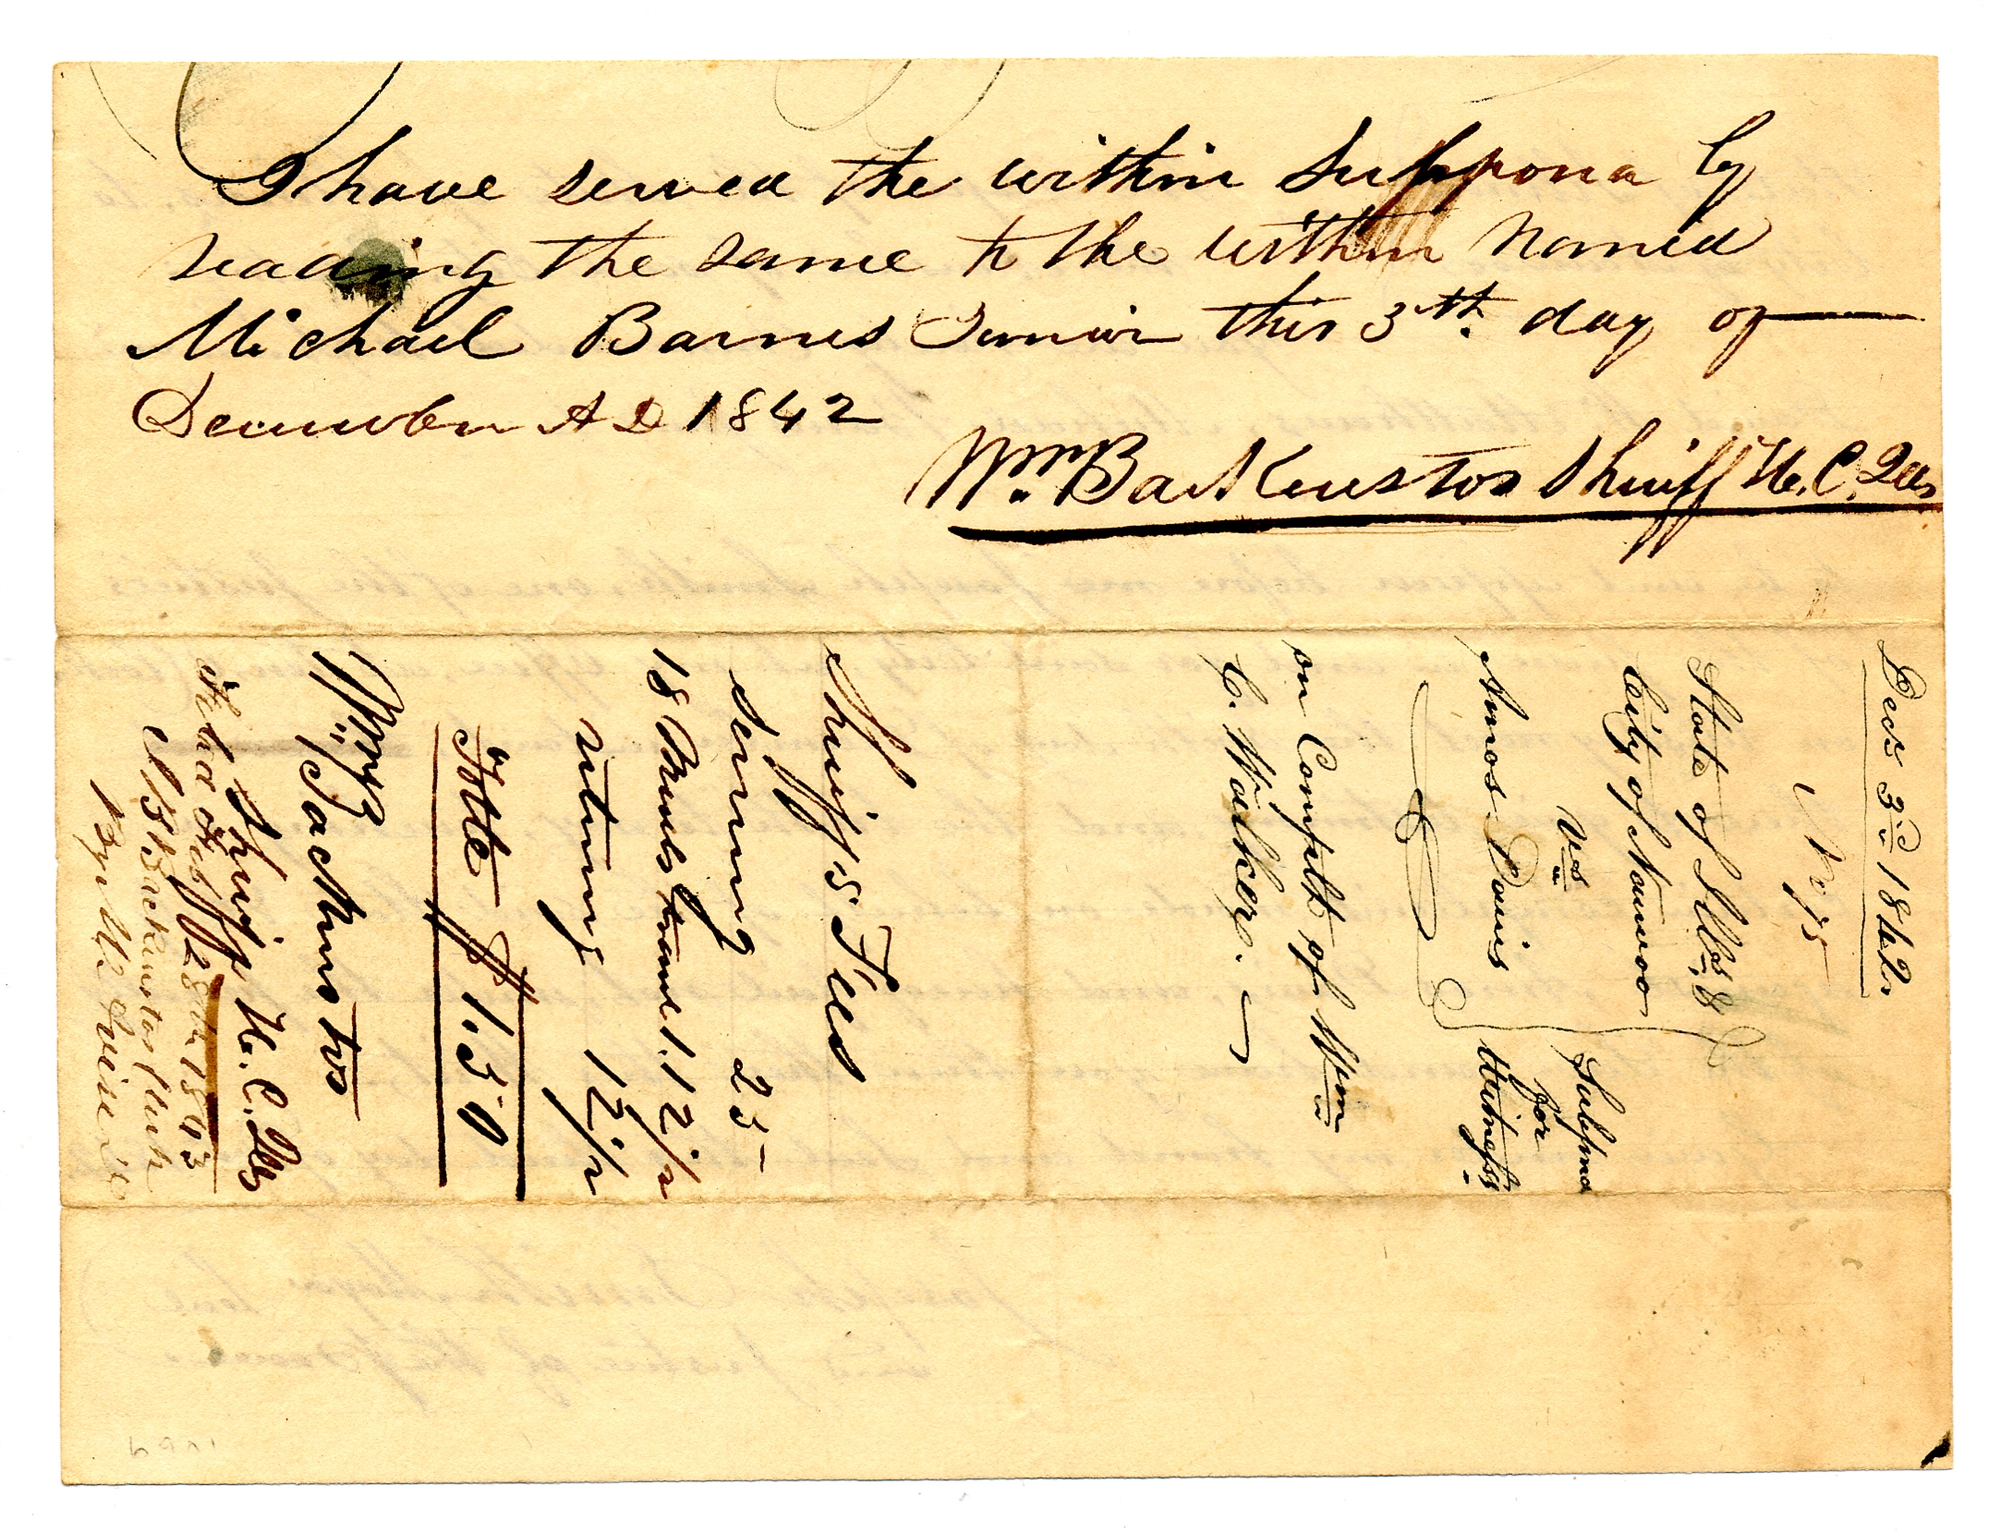 I have served the within Suppona by
reading the same to the within Named
Michael Barnes Junior this 3th. day of
December AD 1842
Wm. Backenstos Sheriff H. C. Ills
Decr. 3rd 1842
State of Ills. &
City of Nauvoo
Vs
Amos Davis
Subpena
for
Witness
on Complt of Wm
C. Walker.
Sheriff's Fees
Serving 25
18 Miles travel 1.12 1/2
returning 12 1/2
Totle $ 1.50
Wm. Backenstos
Sheriff H. C. Ills
Filed Feby 28th 1843
J B Backenstos Clerk